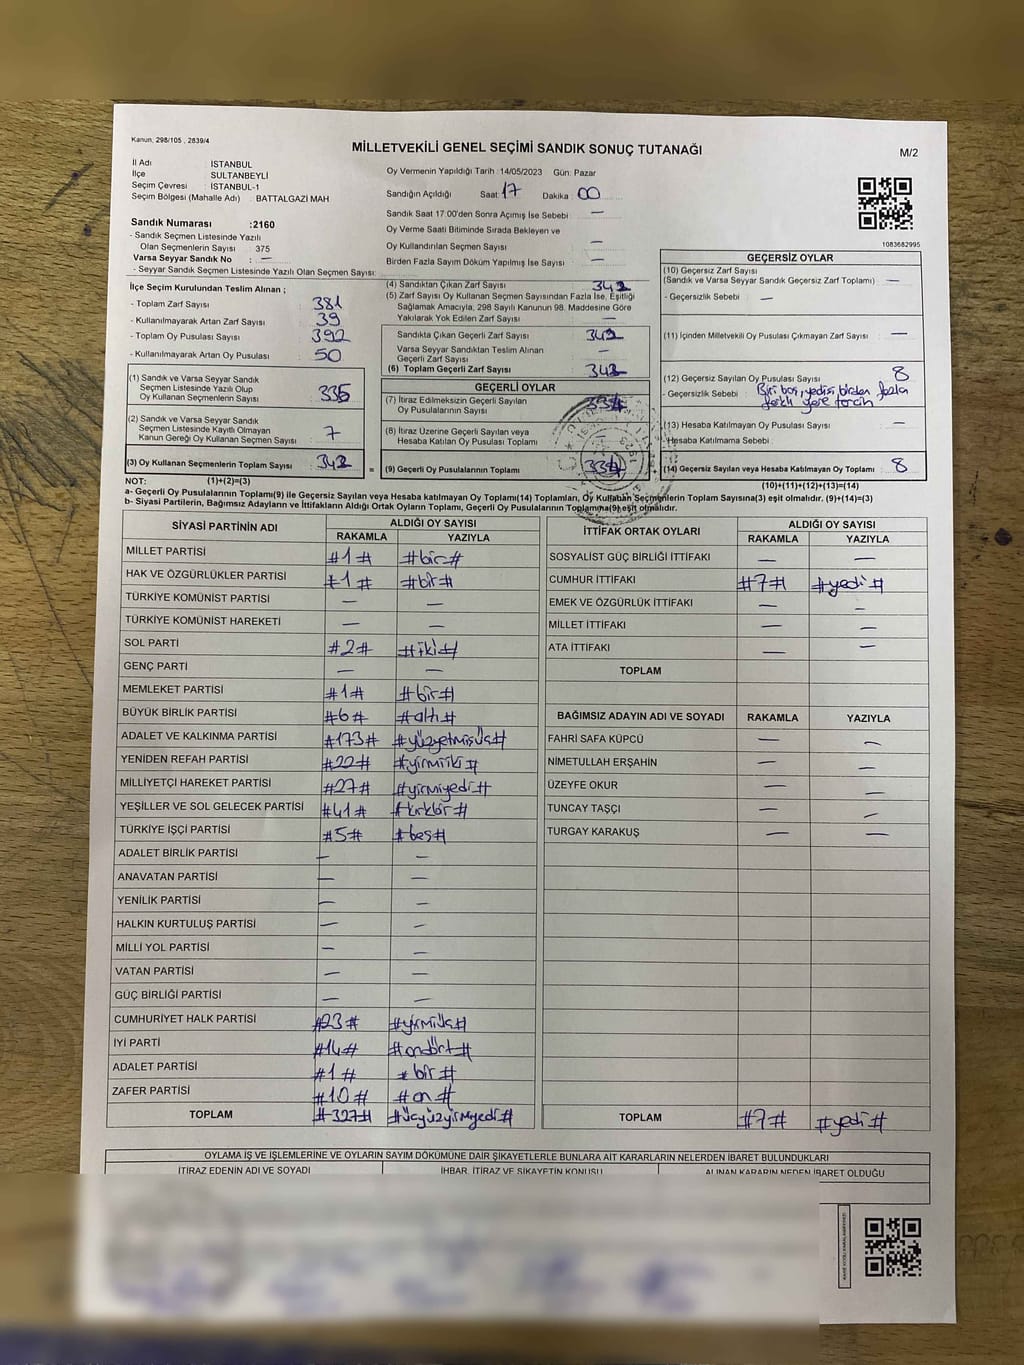 Kanun, 298/105 , 2839/4
MİLLETVEKİLİ GENEL SEÇİMİ SANDIK SONUÇ TUTANAĞI
M/2
İl Adı İSTANBUL
İlçe SULTANBEYLİ
Seçim Çevresi İSTANBUL-1
Seçim Bölgesi (Mahalle Adı) BATTALGAZİ MAH
Sandık Numarası :2160
- Sandık Seçmen Listesinde Yazılı
Olan Seçmenlerin Sayısı 375
Varsa Seyyar Sandık No : —
- Seyyar Sandık Seçmen Listesinde Yazılı Olan Seçmen Sayısı:
Oy Vermenin Yapıldığı Tarih : 14/05/2023 Gün: Pazar
Sandığın Açıldığı Saat: 17 Dakika : 00
Sandık Saat 17:00'den Sonra Açımış İse Sebebi : —
Oy Verme Saati Bitiminde Sırada Bekleyen ve
Oy Kullandırılan Seçmen Sayısı : —
Birden Fazla Sayım Döküm Yapılmış İse Sayısı : —
1083682995
İlçe Seçim Kurulundan Teslim Alınan ;
- Toplam Zarf Sayısı : 381
- Kullanılmayarak Artan Zarf Sayısı : 39
- Toplam Oy Pusulası Sayısı : 392
- Kullanılmayarak Artan Oy Pusulası : 50
(1) Sandık ve Varsa Seyyar Sandık
Seçmen Listesinde Yazılı Olup
Oy Kullanan Seçmenlerin Sayısı : 335
(2) Sandık ve Varsa Seyyar Sandık
Seçmen Listesinde Kayıtlı Olmayan
Kanun Gereği Oy Kullanan Seçmen Sayısı : 7
(3) Oy Kullanan Seçmenlerin Toplam Sayısı : 342
(4) Sandıktan Çıkan Zarf Sayısı : 342
(5) Zarf Sayısı Oy Kullanan Seçmen Sayısından Fazla İse, Eşitliği
Sağlamak Amacıyla, 298 Sayılı Kanunun 98. Maddesine Göre
Yakılarak Yok Edilen Zarf Sayısı : —
Sandıkta Çıkan Geçerli Zarf Sayısı : 342
Varsa Seyyar Sandıktan Teslim Alınan
Geçerli Zarf Sayısı : —
(6) Toplam Geçerli Zarf Sayısı : 342
GEÇERLİ OYLAR
(7) İtiraz Edilmeksizin Geçerli Sayılan
Oy Pusulalarının Sayısı : 334
(8) İtiraz Üzerine Geçerli Sayılan veya
Hesaba Katılan Oy Pusulası Toplamı :
= (9) Geçerli Oy Pusulalarının Toplamı : 334
GEÇERSİZ OYLAR
(10) Geçersiz Zarf Sayısı
(Sandık ve Varsa Seyyar Sandık Geçersiz Zarf Toplamı) : —
- Geçersizlik Sebebi : —
(11) İçinden Milletvekili Oy Pusulası Çıkmayan Zarf Sayısı : —
(12) Geçersiz Sayılan Oy Pusulası Sayısı : 8
- Geçersizlik Sebebi : Biri boş, yedisi birden fazla
farklı yere tercih
(13) Hesaba Katılmayan Oy Pusulası Sayısı : —
- Hesaba Katılmama Sebebi :
+ (14) Geçersiz Sayılan veya Hesaba Katılmayan Oy Toplamı : 8
NOT: (1)+(2)=(3)
(10)+(11)+(12)+(13)=(14)
a- Geçerli Oy Pusulalarının Toplamı(9) ile Geçersiz Sayılan veya Hesaba katılmayan Oy Toplamı(14) Toplamları, Oy Kullanan Seçmenlerin Toplam Sayısına(3) eşit olmalıdır. (9)+(14)=(3)
b- Siyasi Partilerin, Bağımsız Adayların ve İttifakların Aldığı Ortak Oyların Toplamı, Geçerli Oy Pusulalarının Toplamına(9) eşit olmalıdır.
SİYASİ PARTİNİN ADI ALDIĞI OY SAYISI
RAKAMLA YAZIYLA
MİLLET PARTİSİ #1# #bir#
HAK VE ÖZGÜRLÜKLER PARTİSİ #1# #bir#
TÜRKİYE KOMÜNİST PARTİSİ — —
TÜRKİYE KOMÜNİST HAREKETİ — —
SOL PARTİ #2# #iki#
GENÇ PARTİ — —
MEMLEKET PARTİSİ #1# #bir#
BÜYÜK BİRLİK PARTİSİ #6# #altı#
ADALET VE KALKINMA PARTİSİ #173# #yüzyetmişüç#
YENİDEN REFAH PARTİSİ #22# #yirmiiki#
MİLLİYETÇİ HAREKET PARTİSİ #27# #yirmiyedi#
YEŞİLLER VE SOL GELECEK PARTİSİ #41# #kırkbir#
TÜRKİYE İŞÇİ PARTİSİ #5# #beş#
ADALET BİRLİK PARTİSİ — —
ANAVATAN PARTİSİ — —
YENİLİK PARTİSİ — —
HALKIN KURTULUŞ PARTİSİ — —
MİLLİ YOL PARTİSİ — —
VATAN PARTİSİ — —
GÜÇ BİRLİĞİ PARTİSİ — —
CUMHURİYET HALK PARTİSİ #23# #yirmiüç#
İYİ PARTİ #14# #ondört#
ADALET PARTİSİ #1# #bir#
ZAFER PARTİSİ #10# #on#
TOPLAM #327# #üçyüzyirmiyedi#
İTTİFAK ORTAK OYLARI ALDIĞI OY SAYISI
RAKAMLA YAZIYLA
SOSYALİST GÜÇ BİRLİĞİ İTTİFAKI — —
CUMHUR İTTİFAKI #7# #yedi#
EMEK VE ÖZGÜRLÜK İTTİFAKI — —
MİLLET İTTİFAKI — —
ATA İTTİFAKI — —
TOPLAM
BAĞIMSIZ ADAYIN ADI VE SOYADI RAKAMLA YAZIYLA
FAHRİ SAFA KÜPCÜ — —
NİMETULLAH ERŞAHİN — —
ÜZEYFE OKUR — —
TUNCAY TAŞÇI — —
TURGAY KARAKUŞ — —
TOPLAM #7# #yedi#
OYLAMA İŞ VE İŞLEMLERİNE VE OYLARIN SAYIM DÖKÜMÜNE DAİR ŞİKAYETLERLE BUNLARA AİT KARARLARIN NELERDEN İBARET BULUNDUKLARI
İTİRAZ EDENİN ADI VE SOYADI İHBAR, İTİRAZ VE ŞİKAYETİN KONUSU ALINAN KARARIN NEDEN İBARET OLDUĞU